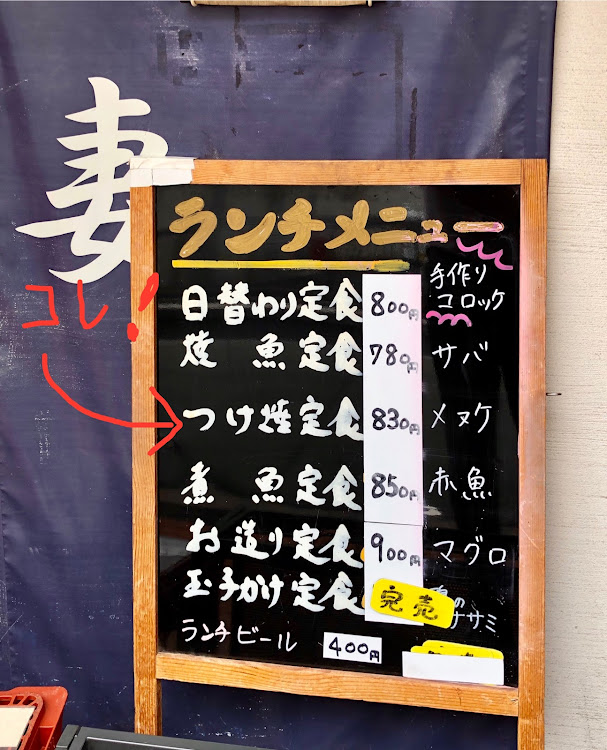 妻
コレ!
ランチメニュー
日替わり定食 800円 手作りコロッケ
焼魚定食 780円 サバ
つけ焼定食 830円 メヌケ
煮魚定食 850円 赤魚
お造り定食 900円 マグロ
玉子かけ定食 完売 ササミ
ランチビール 400円